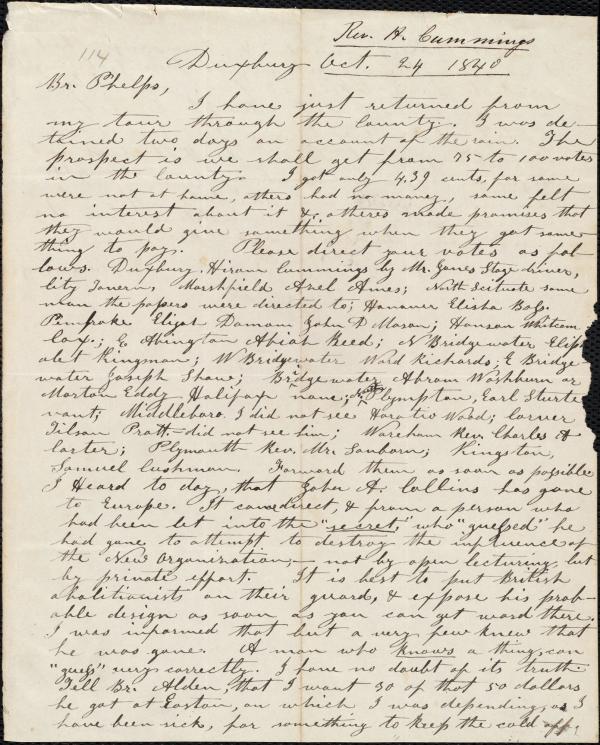 Rev. H. Cummings
114
Duxbury Oct. 24 1840
Br. Phelps,
I have just returned from
my tour through the County. I was de-
tained two days on account of the rain. The
prospect is we shall get from 75 to 100 votes
in the County. I got only 4.39 cents, for some
were not at home, others had no money, some felt
no interest about it & others made promises that
they would give something when they got some-
thing to pay. Please direct your votes as fol-
lows. Duxbury, Hiram Cummings by Mr. Jones Stage driver,
City Tavern, Marshfield Asel Ames; North Scituate same
man the papers were directed to; Hanover Elisha Bass.
Pembroke Elijah Damam John D Mason; Hanson Whitcom
Cox.; E Abington Abiah Reed; N Bridgewater Eliph
alet Kingman; W Bridgewater Ward Richards; E Bridge-
water Joseph Shaw; Bridgewater Abram Washburn or
Morton Eddy Halifax none; Plympton, Earl Sturte
vant; Middleboro. I did not see Horatio Wood; Carver
Tilson Pratt – did not see him; Wareham Rev. Charles
Carter; Plymouth Rev. Mr. Sanborn; Kingston,
Samuel Cushman. Forward them as soon as possible
I Heard to day, that John A. Collins has gone
to Europe. It came direct, & from a person who
had been let into the "secret," who "guessed" he
had gone to attempt to destroy the influence of
the New Organization, – not by open lecturing, but
by private effort. It is best to put British
abolitionists on their guard, & expose his prob-
able design as soon as you can get word there.
I was informed that but a very few knew that
he was gone. A man who knows a thing, can
"guess" very correctly. I have no doubt of its truth
Tell Br. Alden, that I want 30 of that 50 dollars
he got at Easton, on which I was depending, as I
have been sick, for something to keep the cold off,